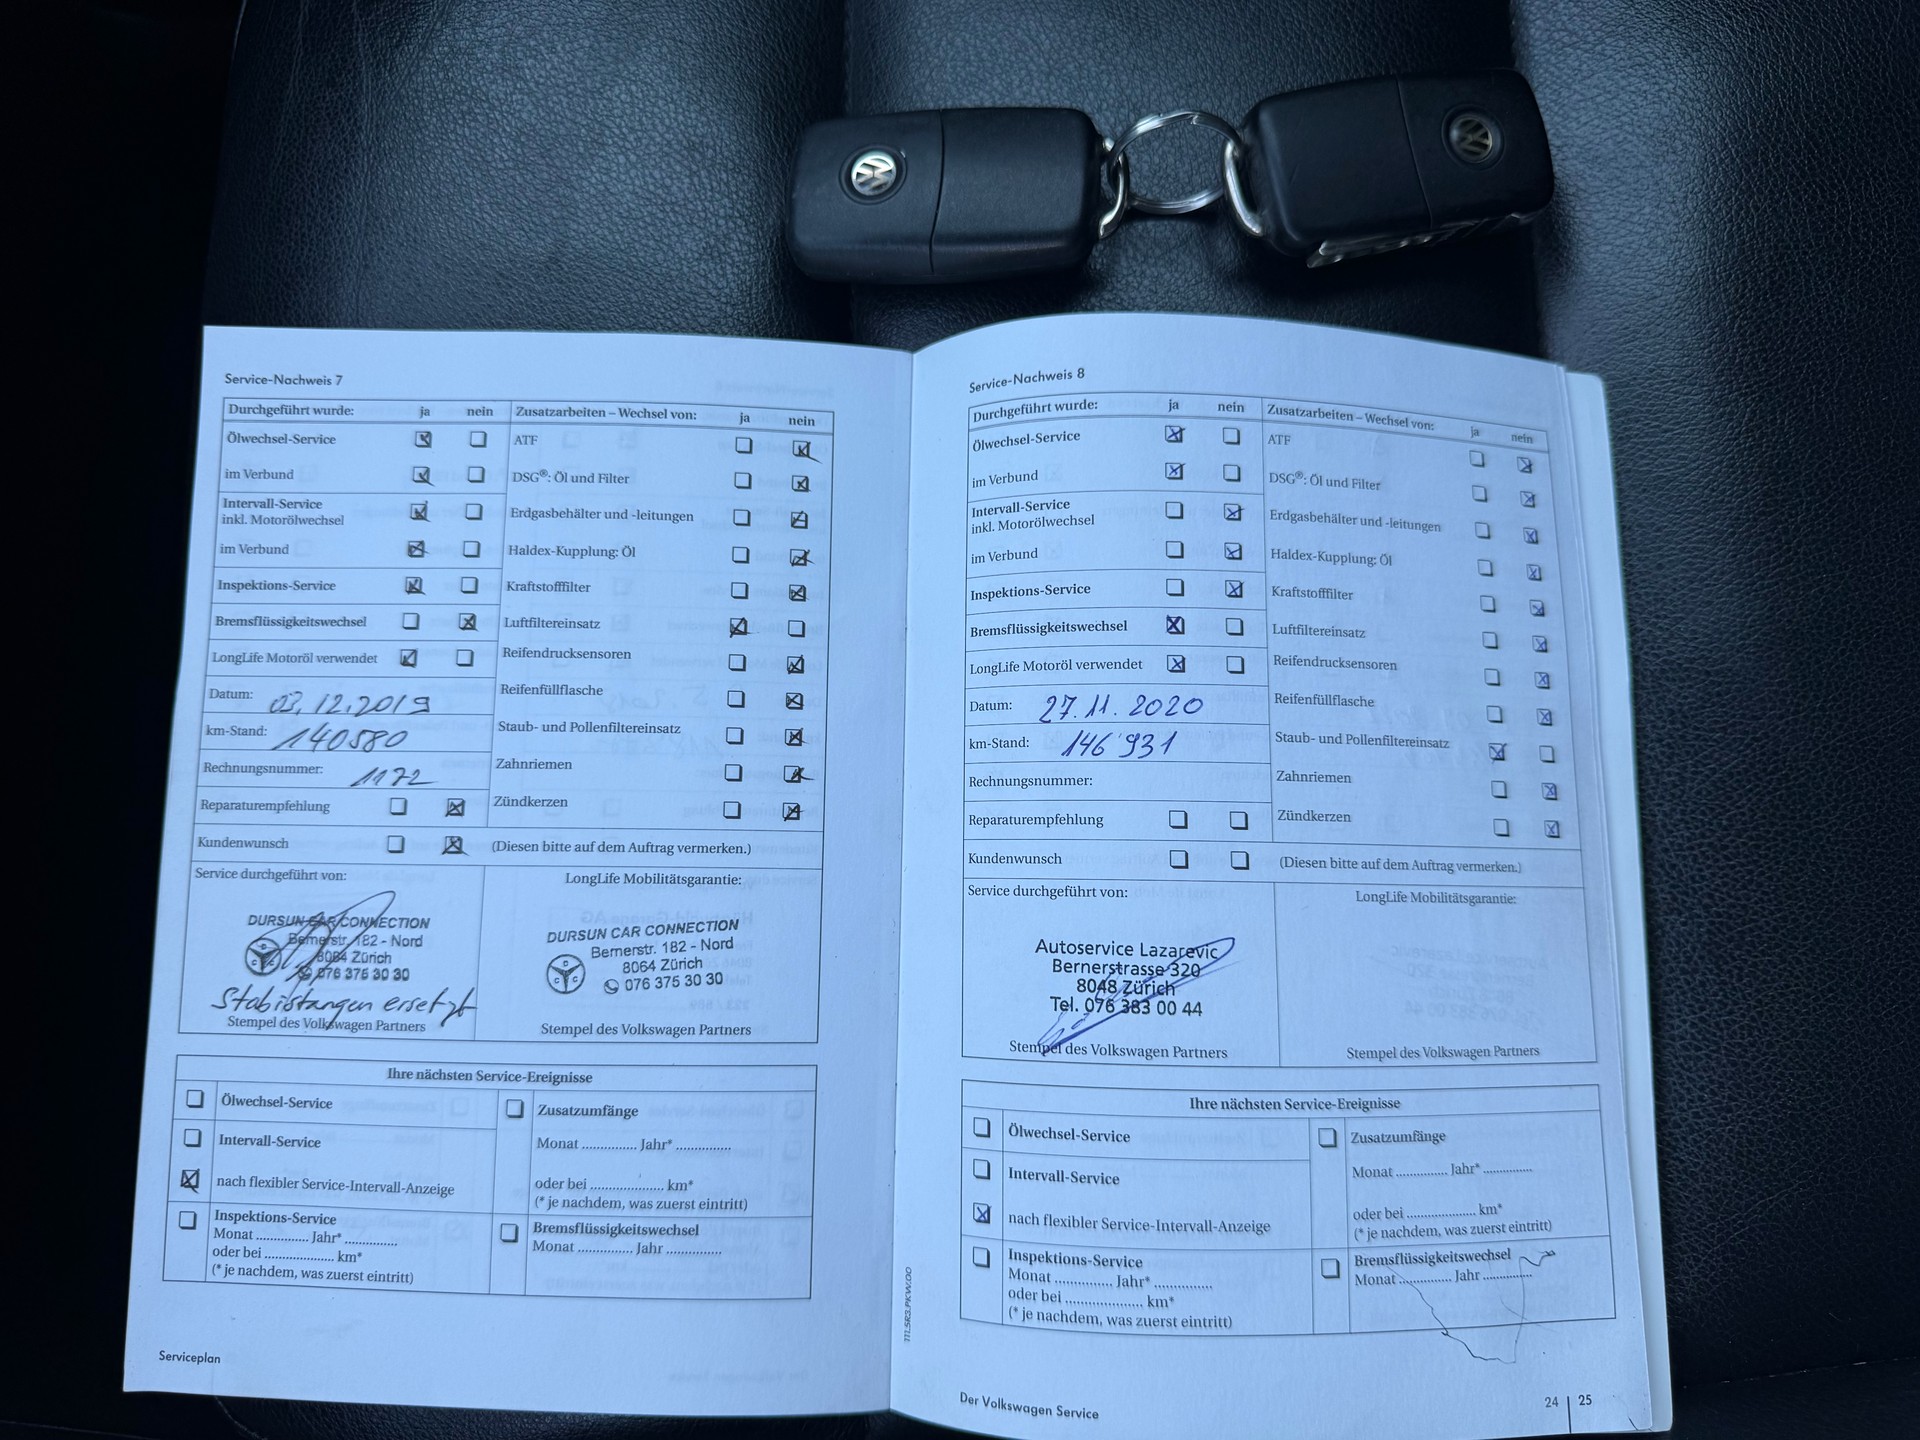 Service-Nachweis 7
Durchgeführt wurde: ja nein
Zusatzarbeiten – Wechsel von: ja nein
Ölwechsel-Service
ATF
im Verbund
DSG®: Öl und Filter
Intervall-Service
inkl. Motorölwechsel
Erdgasbehälter und -leitungen
im Verbund
Haldex-Kupplung: Öl
Inspektions-Service
Kraftstofffilter
Bremsflüssigkeitswechsel
Luftfiltereinsatz
LongLife Motoröl verwendet
Reifendrucksensoren
Datum: 03.12.2019
Reifenfüllflasche
km-Stand: 140580
Staub- und Pollenfiltereinsatz
Rechnungsnummer: 1172
Zahnriemen
Reparaturempfehlung
Zündkerzen
Kundenwunsch
(Diesen bitte auf dem Auftrag vermerken.)
Service durchgeführt von:
DURSUN CAR CONNECTION
Bernerstr. 182 - Nord
8064 Zürich
076 375 30 30
Stabistangen ersetzt
Stempel des Volkswagen Partners
LongLife Mobilitätsgarantie:
DURSUN CAR CONNECTION
Bernerstr. 182 - Nord
8064 Zürich
076 375 30 30
Stempel des Volkswagen Partners
Ihre nächsten Service-Ereignisse
Ölwechsel-Service
Intervall-Service
nach flexibler Service-Intervall-Anzeige
Inspektions-Service
Monat ............... Jahr* ...............
oder bei .................... km*
(* je nachdem, was zuerst eintritt)
Zusatzumfänge
Monat ............... Jahr* ...............
oder bei .................... km*
(* je nachdem, was zuerst eintritt)
Bremsflüssigkeitswechsel
Monat ............... Jahr ...............
Serviceplan
Service-Nachweis 8
Durchgeführt wurde: ja nein
Zusatzarbeiten – Wechsel von: ja nein
Ölwechsel-Service
ATF
im Verbund
DSG®: Öl und Filter
Intervall-Service
inkl. Motorölwechsel
Erdgasbehälter und -leitungen
im Verbund
Haldex-Kupplung: Öl
Inspektions-Service
Kraftstofffilter
Bremsflüssigkeitswechsel
Luftfiltereinsatz
LongLife Motoröl verwendet
Reifendrucksensoren
Datum: 27.11.2020
Reifenfüllflasche
km-Stand: 146'931
Staub- und Pollenfiltereinsatz
Rechnungsnummer:
Zahnriemen
Reparaturempfehlung
Zündkerzen
Kundenwunsch
(Diesen bitte auf dem Auftrag vermerken.)
Service durchgeführt von:
Autoservice Lazarevic
Bernerstrasse 320
8048 Zürich
Tel. 076 383 00 44
Stempel des Volkswagen Partners
LongLife Mobilitätsgarantie:
Stempel des Volkswagen Partners
Ihre nächsten Service-Ereignisse
Ölwechsel-Service
Intervall-Service
nach flexibler Service-Intervall-Anzeige
Inspektions-Service
Monat ............... Jahr* ...............
oder bei .................... km*
(* je nachdem, was zuerst eintritt)
Zusatzumfänge
Monat ............... Jahr* ...............
oder bei .................... km*
(* je nachdem, was zuerst eintritt)
Bremsflüssigkeitswechsel
Monat ............... Jahr ...............
Der Volkswagen Service
24 | 25